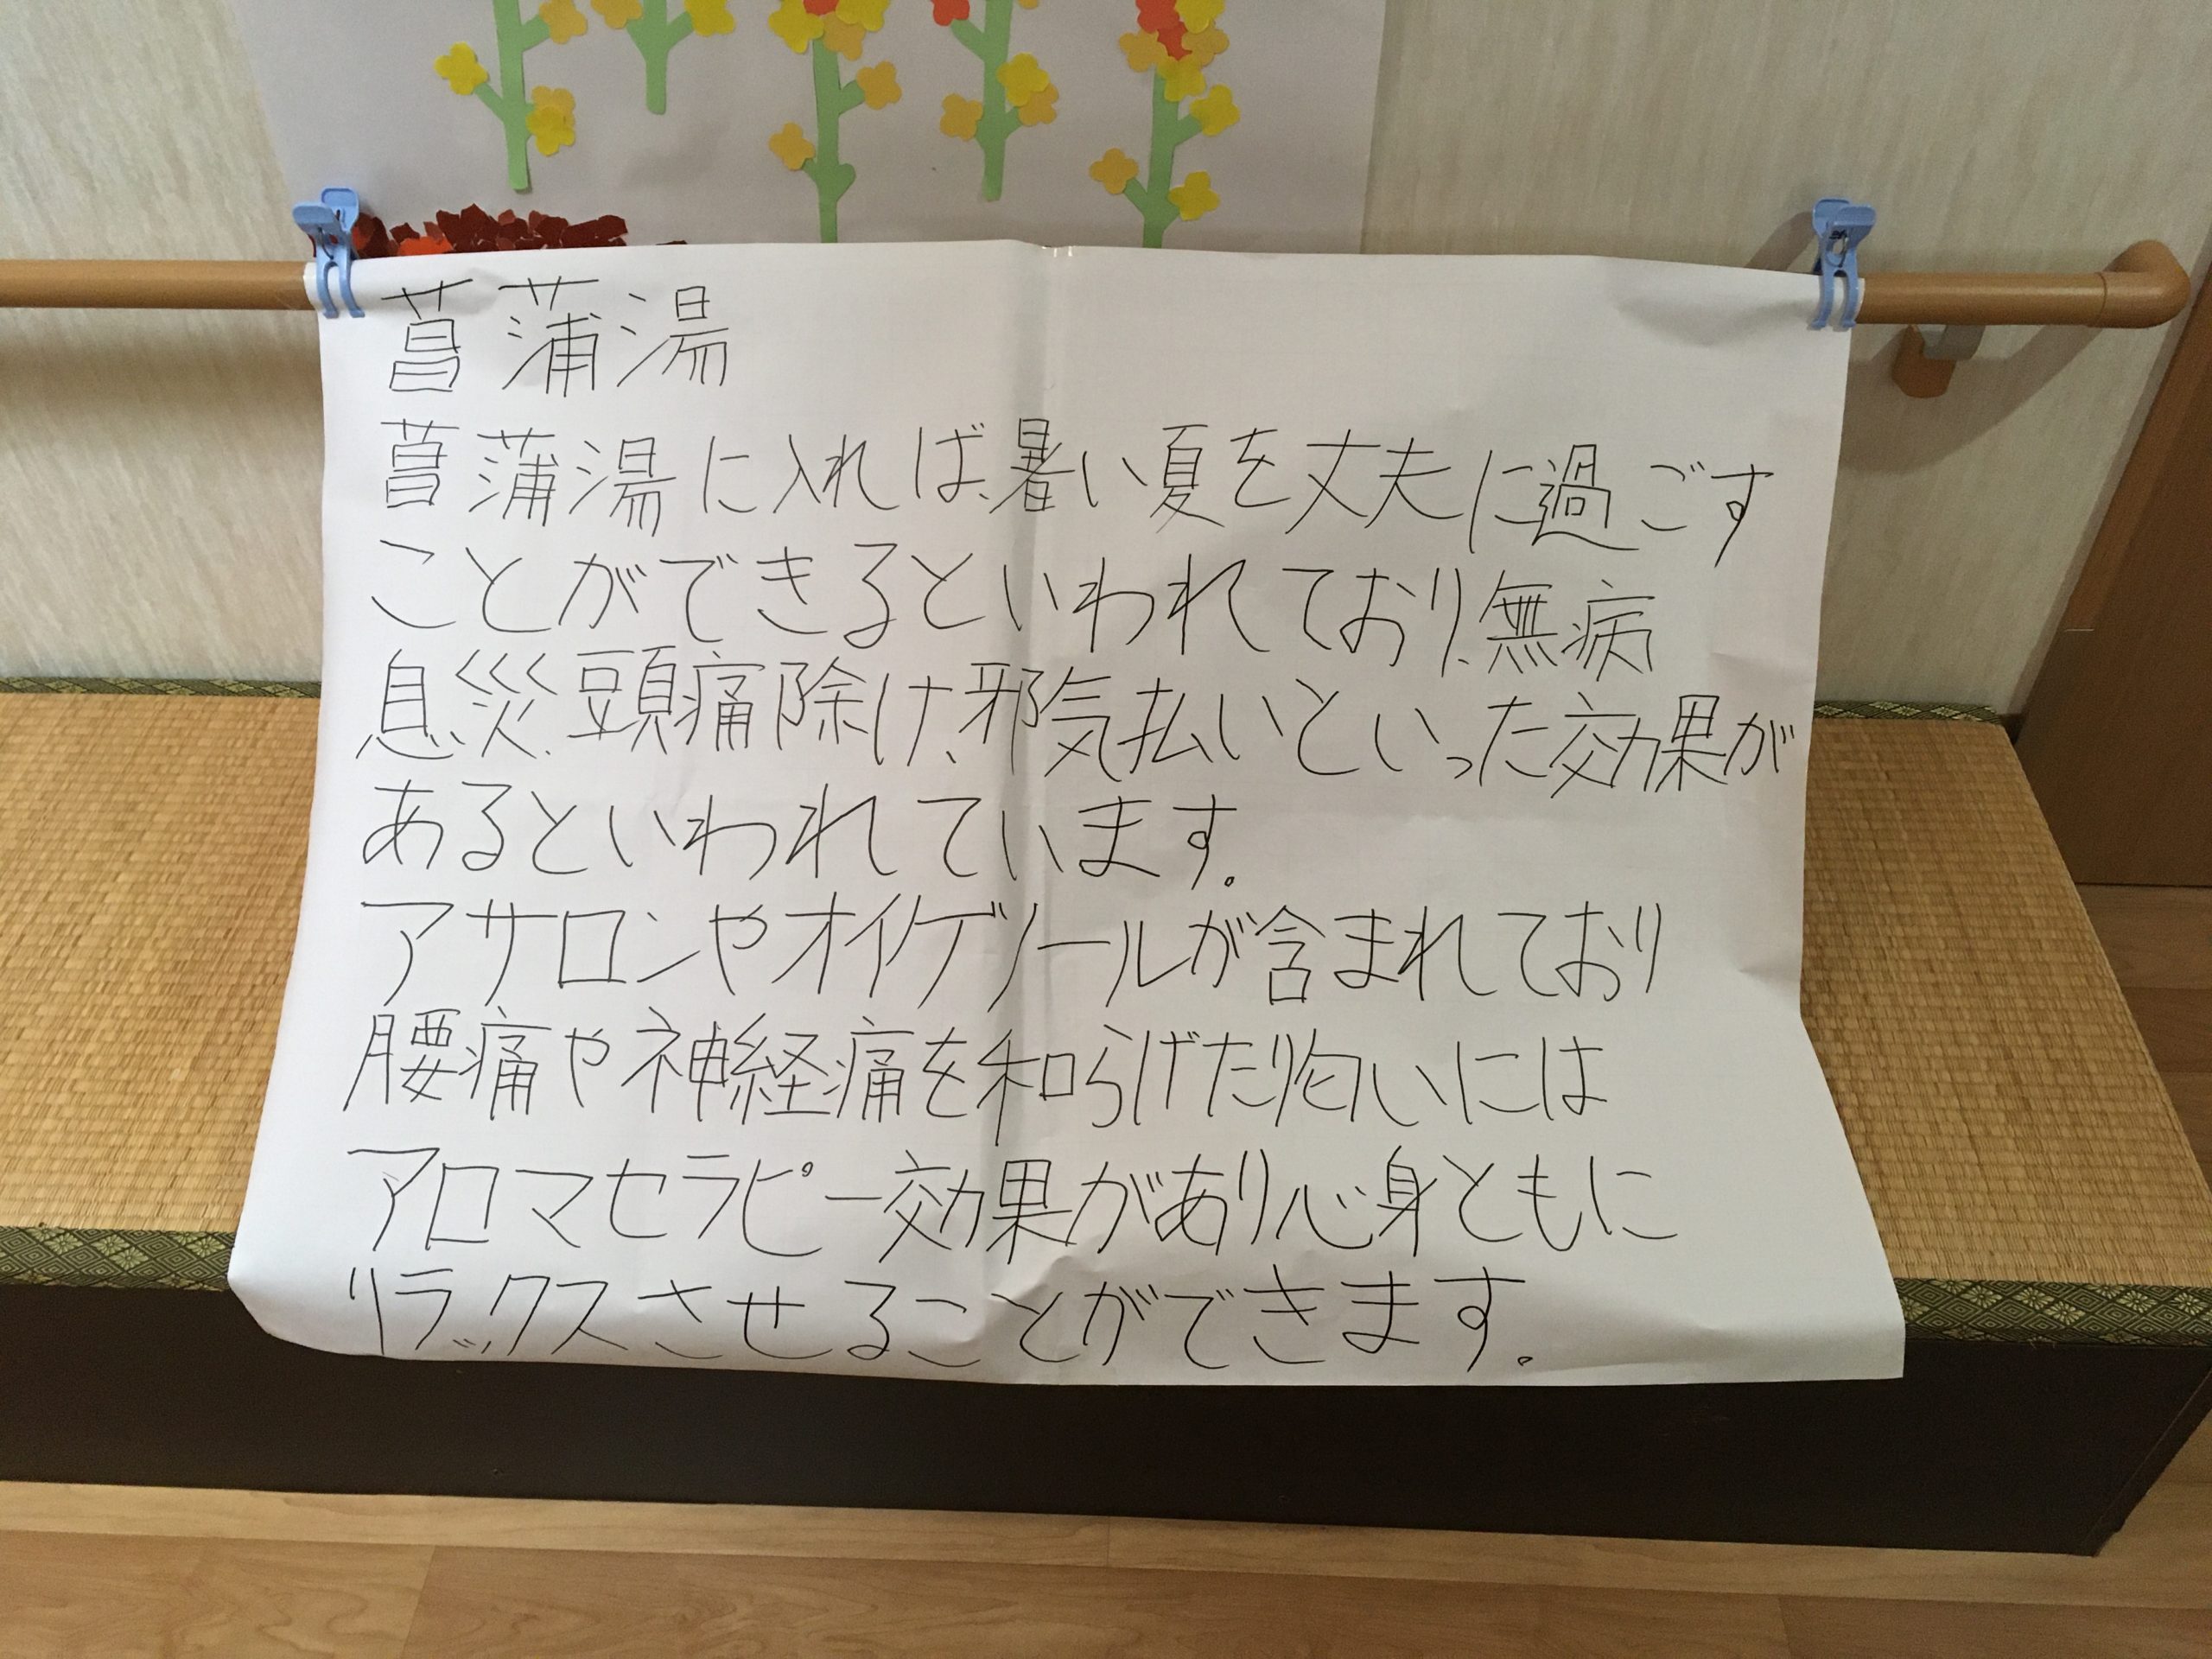 菖蒲湯
菖蒲湯に入れば、暑い夏を丈夫に過ごす
ことができるといわれており、無病
息災、頭痛除け、邪気払いといった効果が
あるといわれています。
アサロンやオイゲノールが含まれており
腰痛や神経痛を和らげたり匂いには
アロマセラピー効果があり心身ともに
リラックスさせることができます。